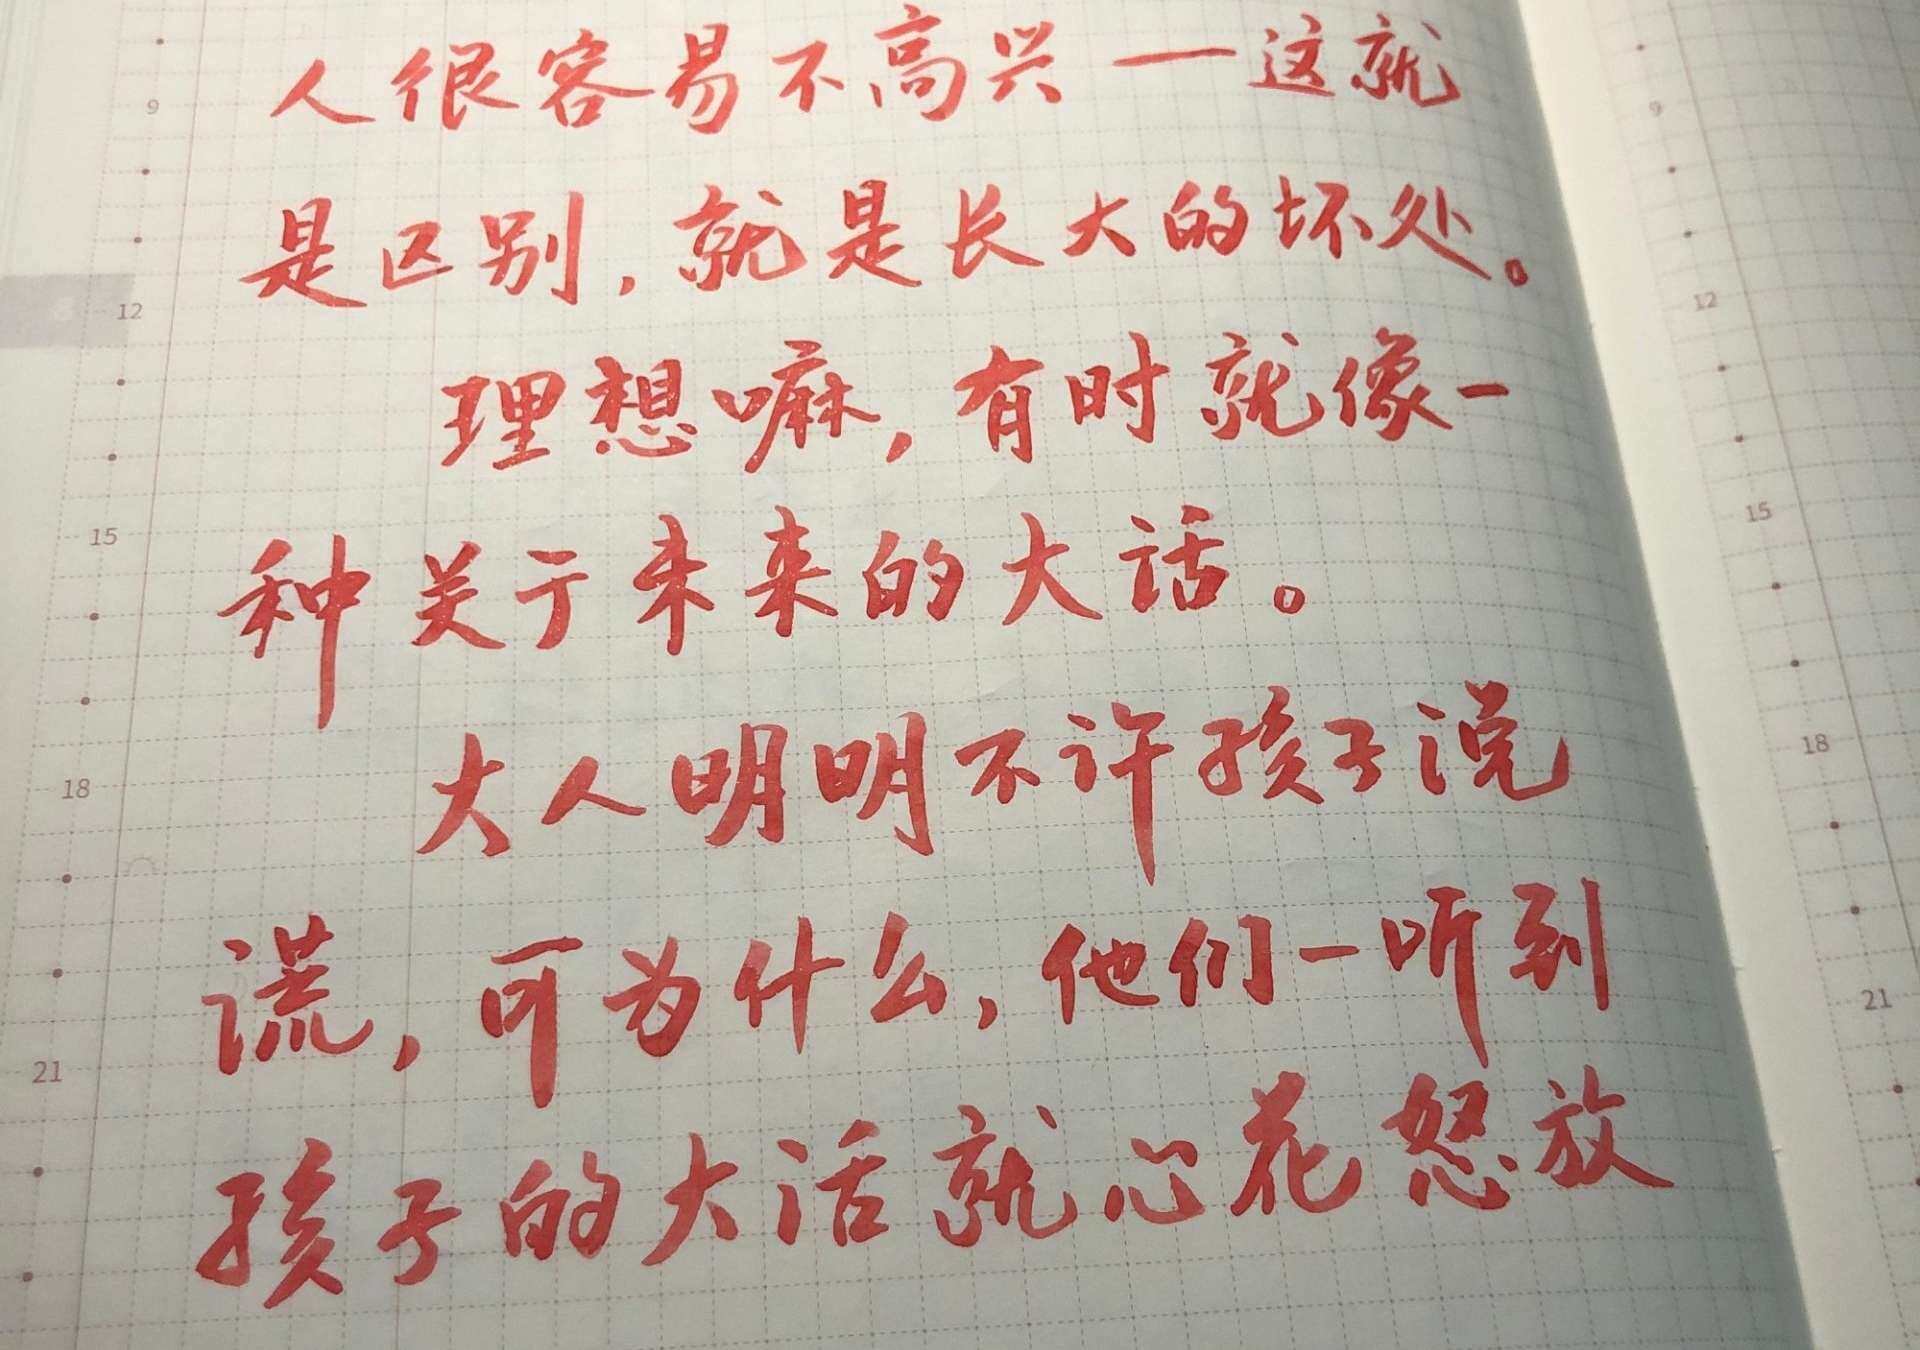 人很容易不高兴——这就
是区别，就是长大的坏处。
理想嘛，有时就像一
种关于未来的大话。
大人明明不许孩子说
谎，可为什么，他们一听到
孩子的大话就心花怒放
9
12
15
18
21
9
12
15
18
21